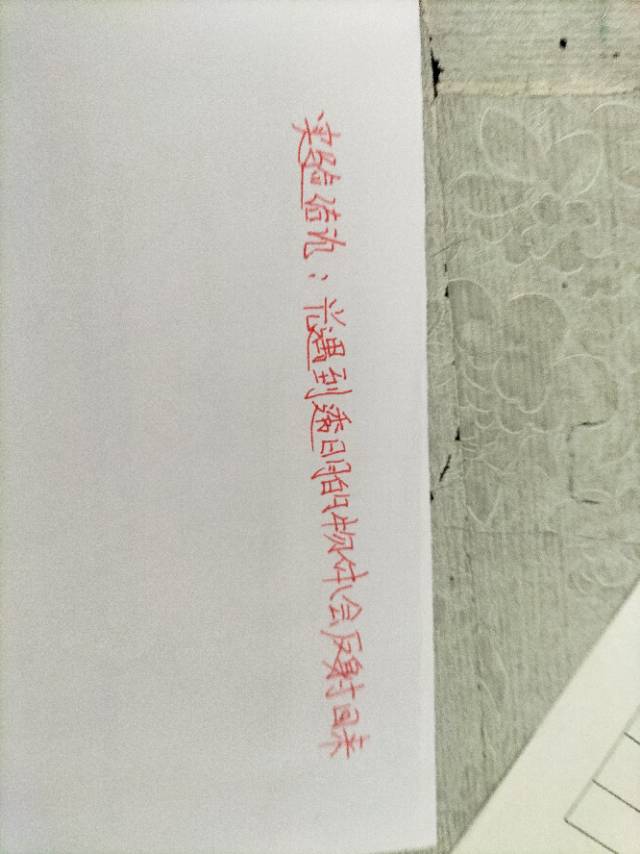 实验结论：光遇到透明的物体会反射回来